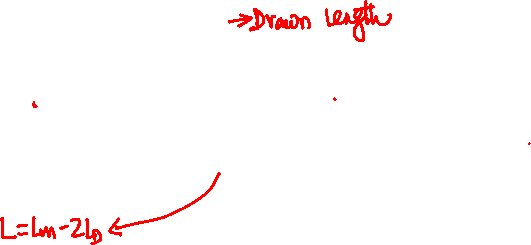 →Drawn length
L=Lm-2LD